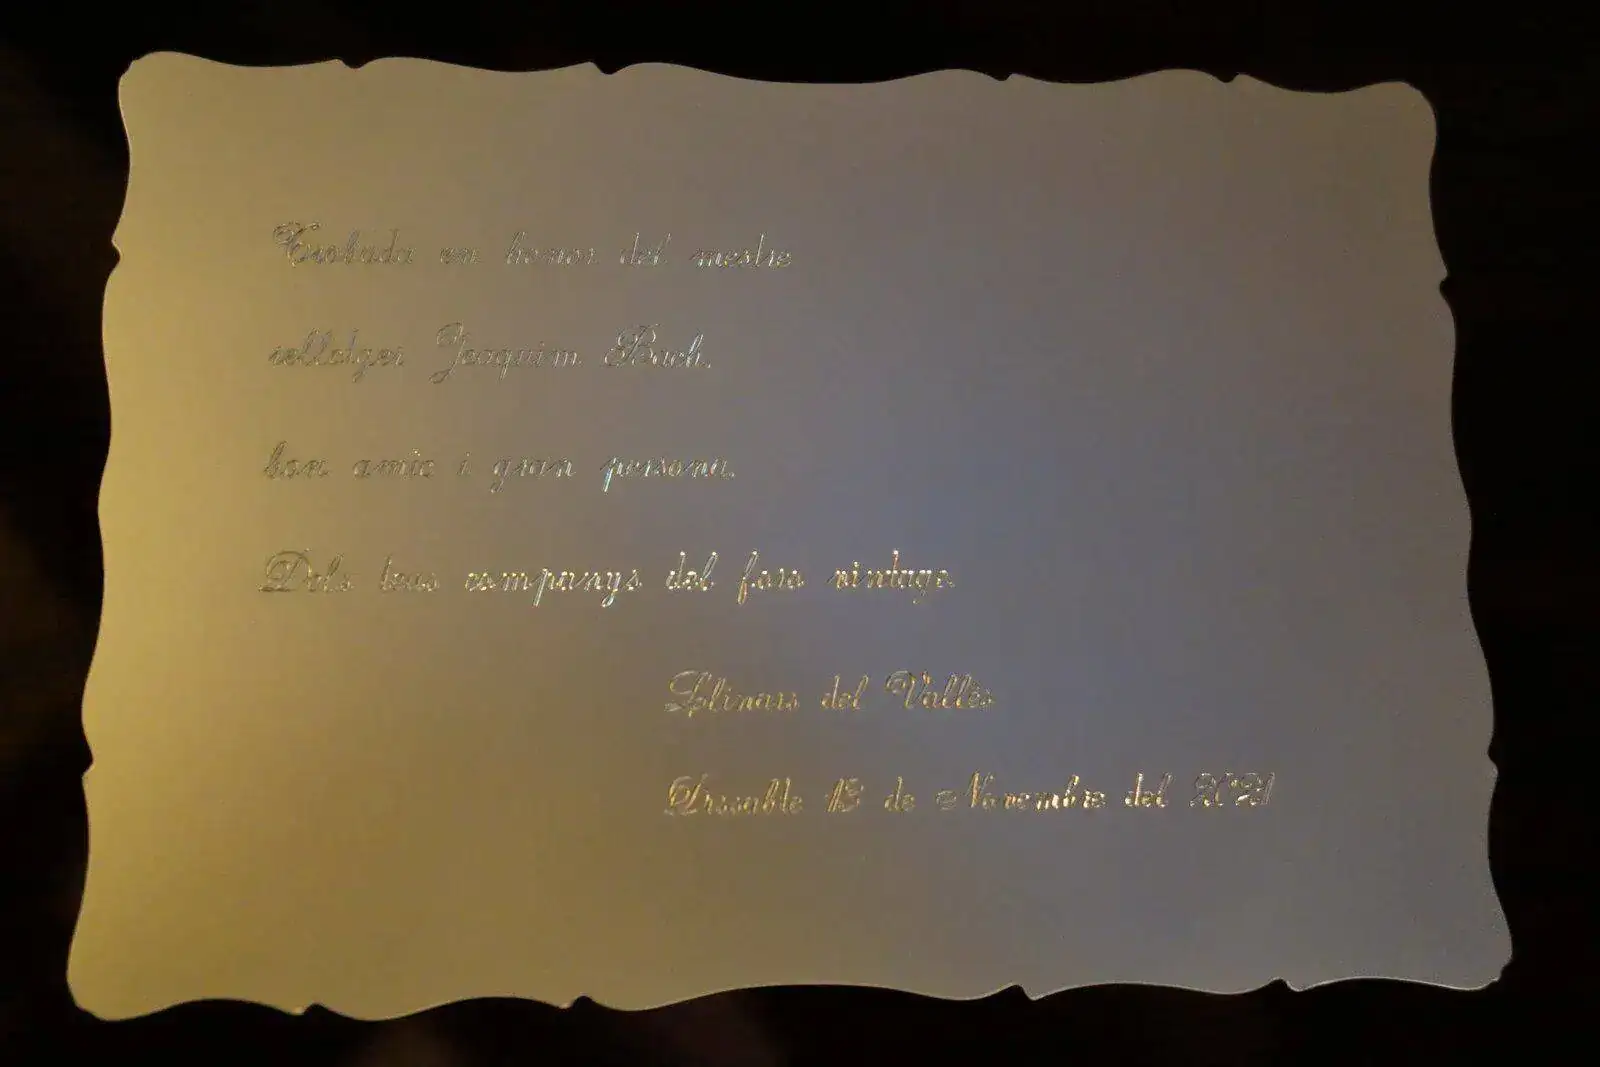 Trobada en honor del mestre
rellotger Joaquim Bach.
bon amic i gran persona.
Dels teus companys del foro vintage.
Llinars del Vallès
Dissabte 13 de Novembre del 2021